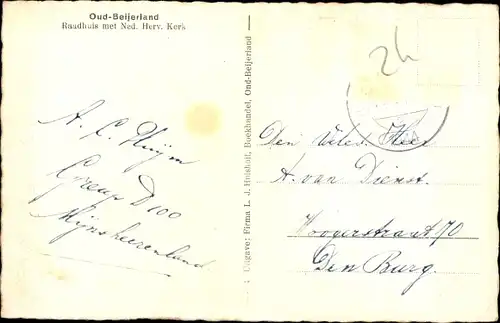 Oud-Beijerland
Raadhuis met Ned. Herv. Kerk
2h
A. C. Kluijm
Greup D 100
Mijnsheerenland
Uitgave: Firma L. J. Hulshoff, Boekhandel, Oud-Beijerland
Den Weled. Heer
A. van Dienst.
Hoogerstraat 70
Den Burg.